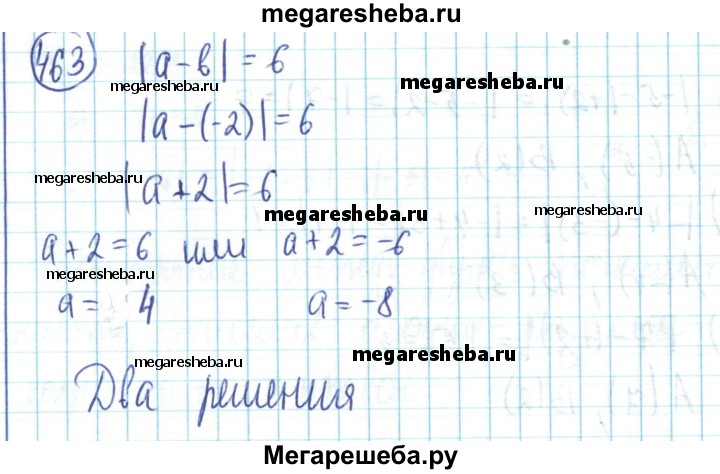 megaresheba.ru
463) |a-в|=6
megaresheba.ru
megaresheba.ru
|a-(-2)|=6
megaresheba.ru
|a+2|=6
megaresheba.ru
megaresheba.ru
a+2=6 или a+2=-6
megaresheba.ru
a= 4 a=-8
megaresheba.ru
megaresheba.ru
Два решения
Мегарешеба.ру